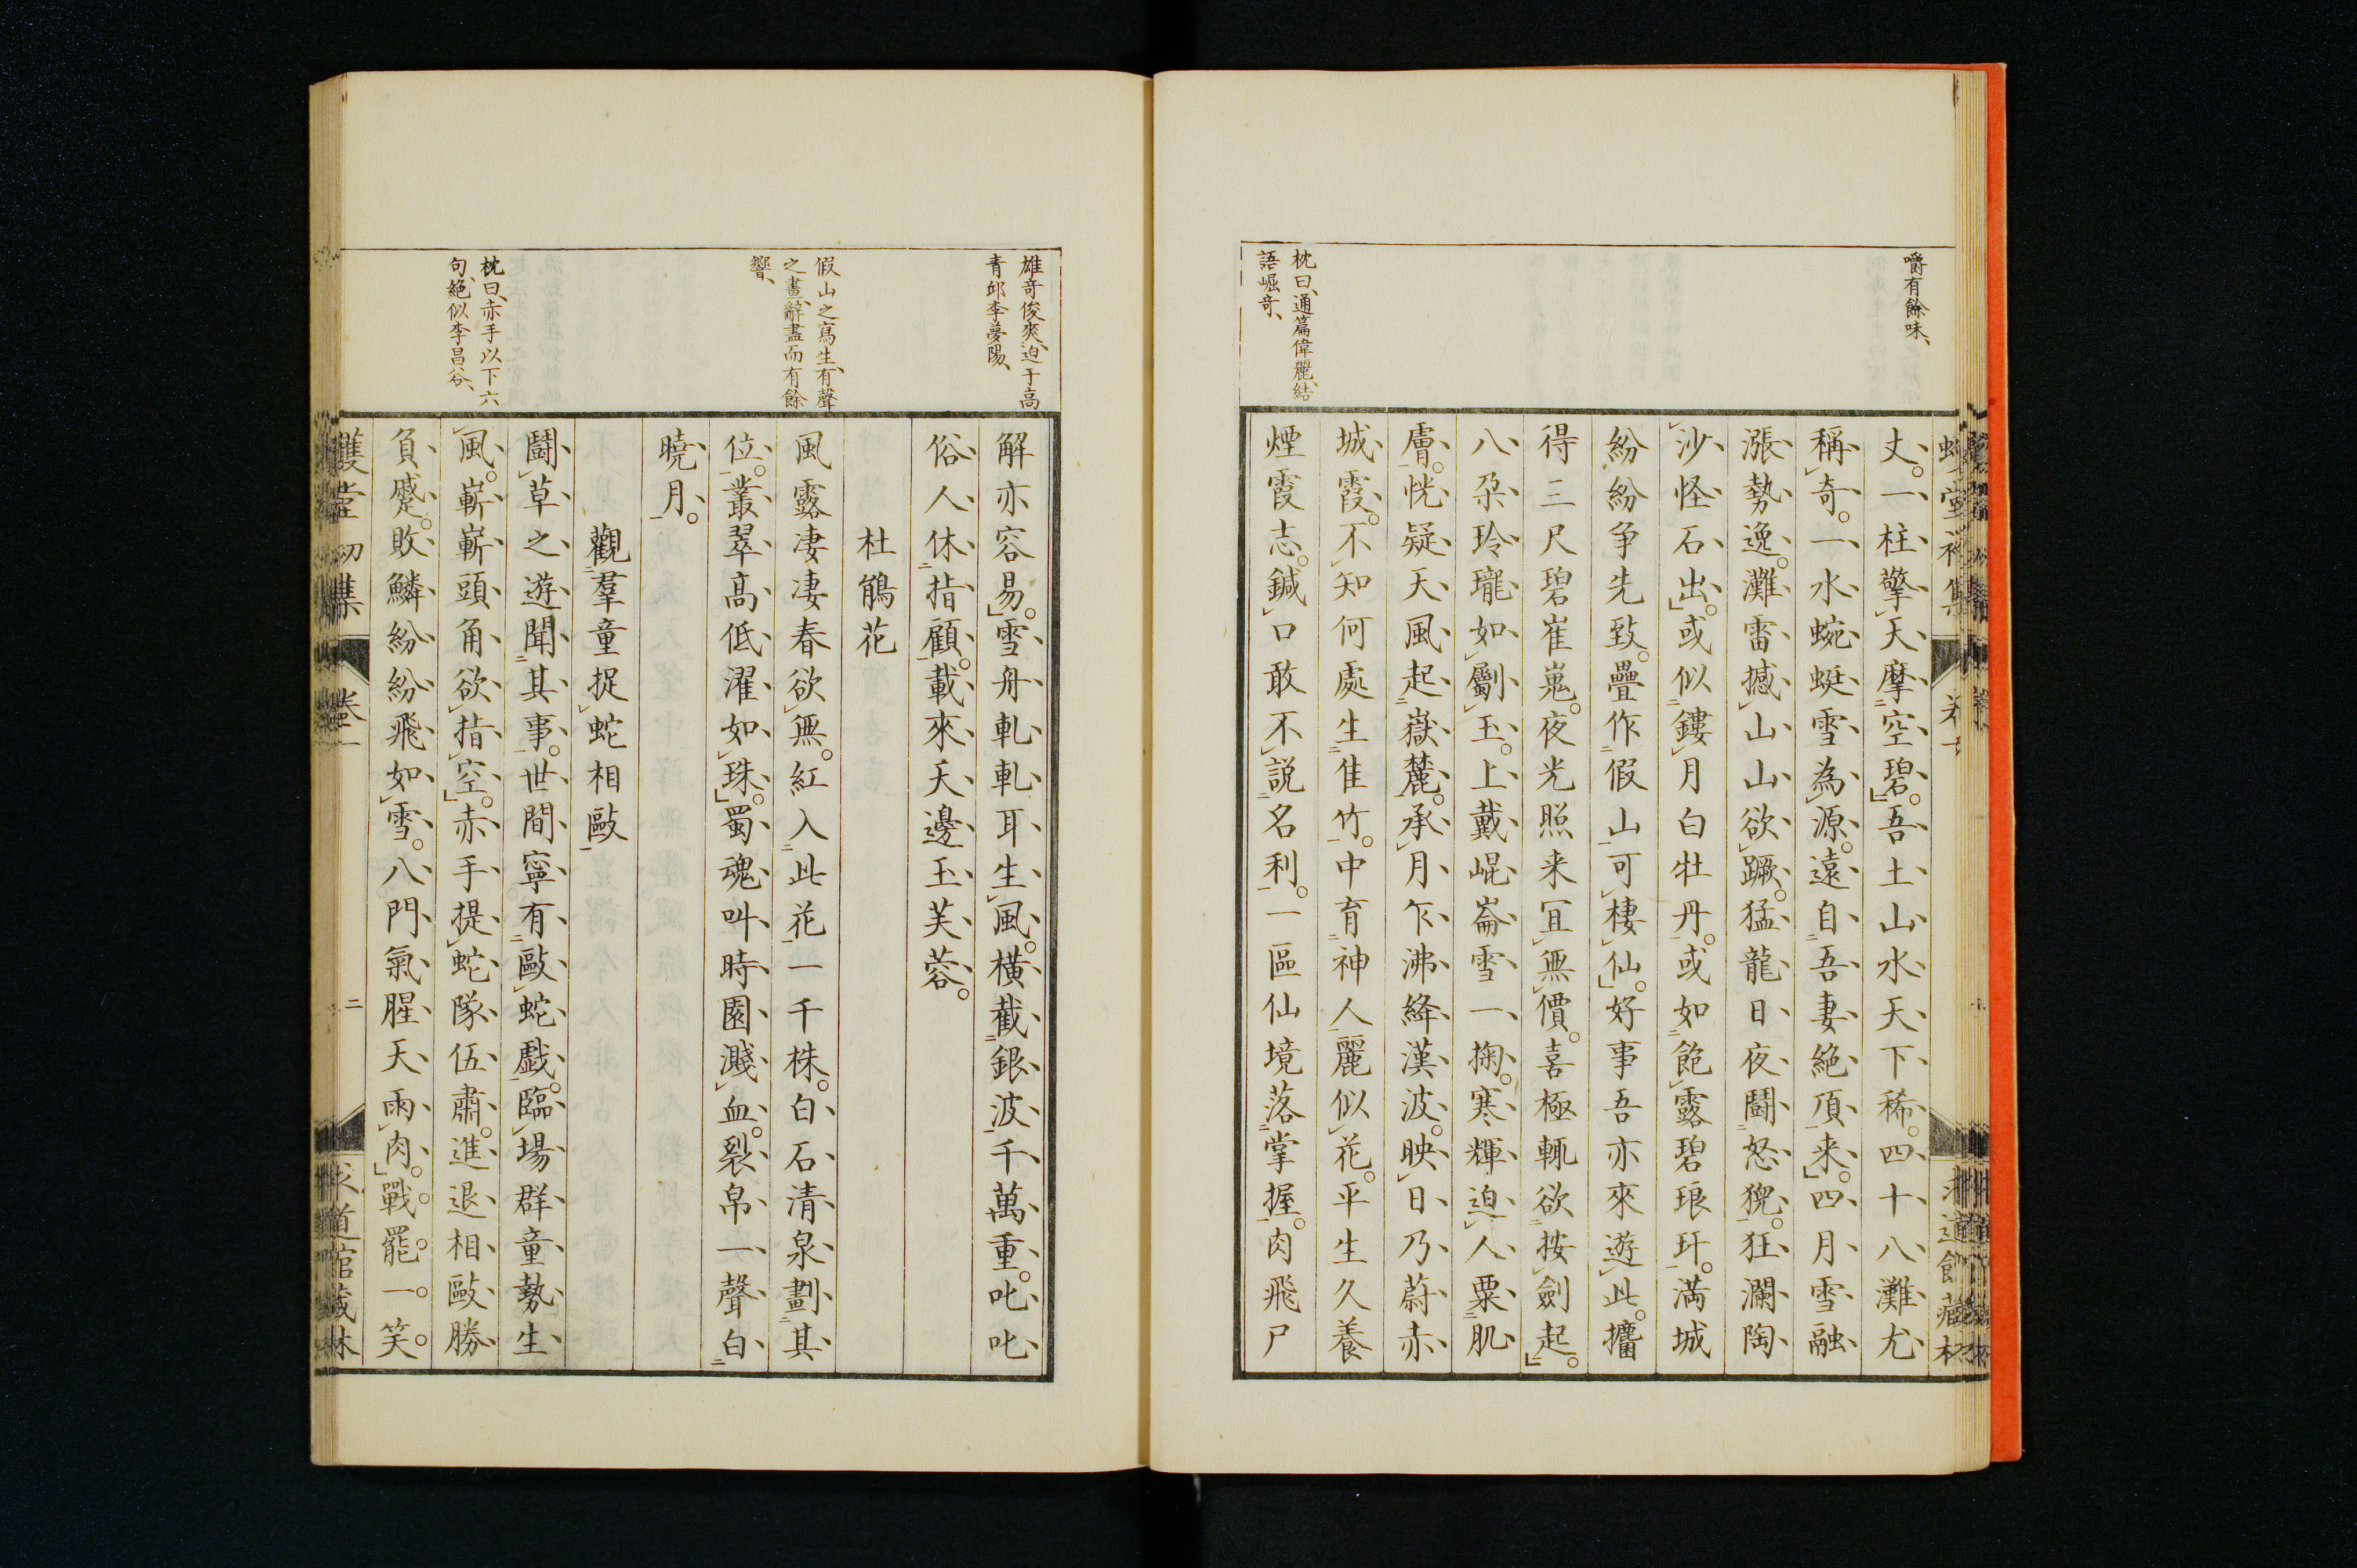 嚼有餘味、
枕曰、通篇偉麗、結
語崛奇、
丈。一柱擎天摩空碧。吾土山水天下稀。四十八灘尤
稱奇。一水蜿蜒雪為源。遠自吾妻絶頂来。四月雪融
漲勢逸。灘雷撼山山欲蹶。猛龍日夜鬪怒猊。狂瀾陶
沙怪石出。或似鏤月白牡丹。或如飽露碧琅玕。満城
紛紛争先致。疊作假山可棲仙。好事吾亦來遊此。攟
得三尺碧崔嵬。夜光照来冝無價。喜極輒欲按劍起。
八朶玲瓏如劚玉。上戴崐崙雪一掬。寒輝迫人粟肌
膚。恍疑天風起嶽麓。承月乍沸絳漢波。映日乃蔚赤
城霞。不知何處生隹竹。中育神人麗似花。平生久養
煙霞志。鍼口敢不説名利。一區仙境落掌握。肉飛尸
雄奇俊爽、迫于高
青邱李夢陽、
假山之寫生、有聲
之畫、辭盡而有餘
響、
枕曰、赤手以下六
句、絶似李昌谷、
解亦容易。雪舟軋軋耳生風。横截銀波千萬重。叱叱
俗人休指顧。載來天邊玉芙蓉。
杜鵑花
風露凄凄春欲無。紅入此花一千株。白石清泉劃其
位。叢翠高低濯如珠。蜀魂叫時園濺血。裂帛一聲白
曉月。
觀羣童捉蛇相毆
鬪草之遊聞其事。世間寧有毆蛇戲。臨場群童勢生
風。嶄嶄頭角欲指空。赤手提蛇隊伍肅。進退相毆勝
負蹙。敗鱗紛紛飛如雪。八門氣腥天雨肉。戰罷一笑
堂初集 卷一 二 道館藏